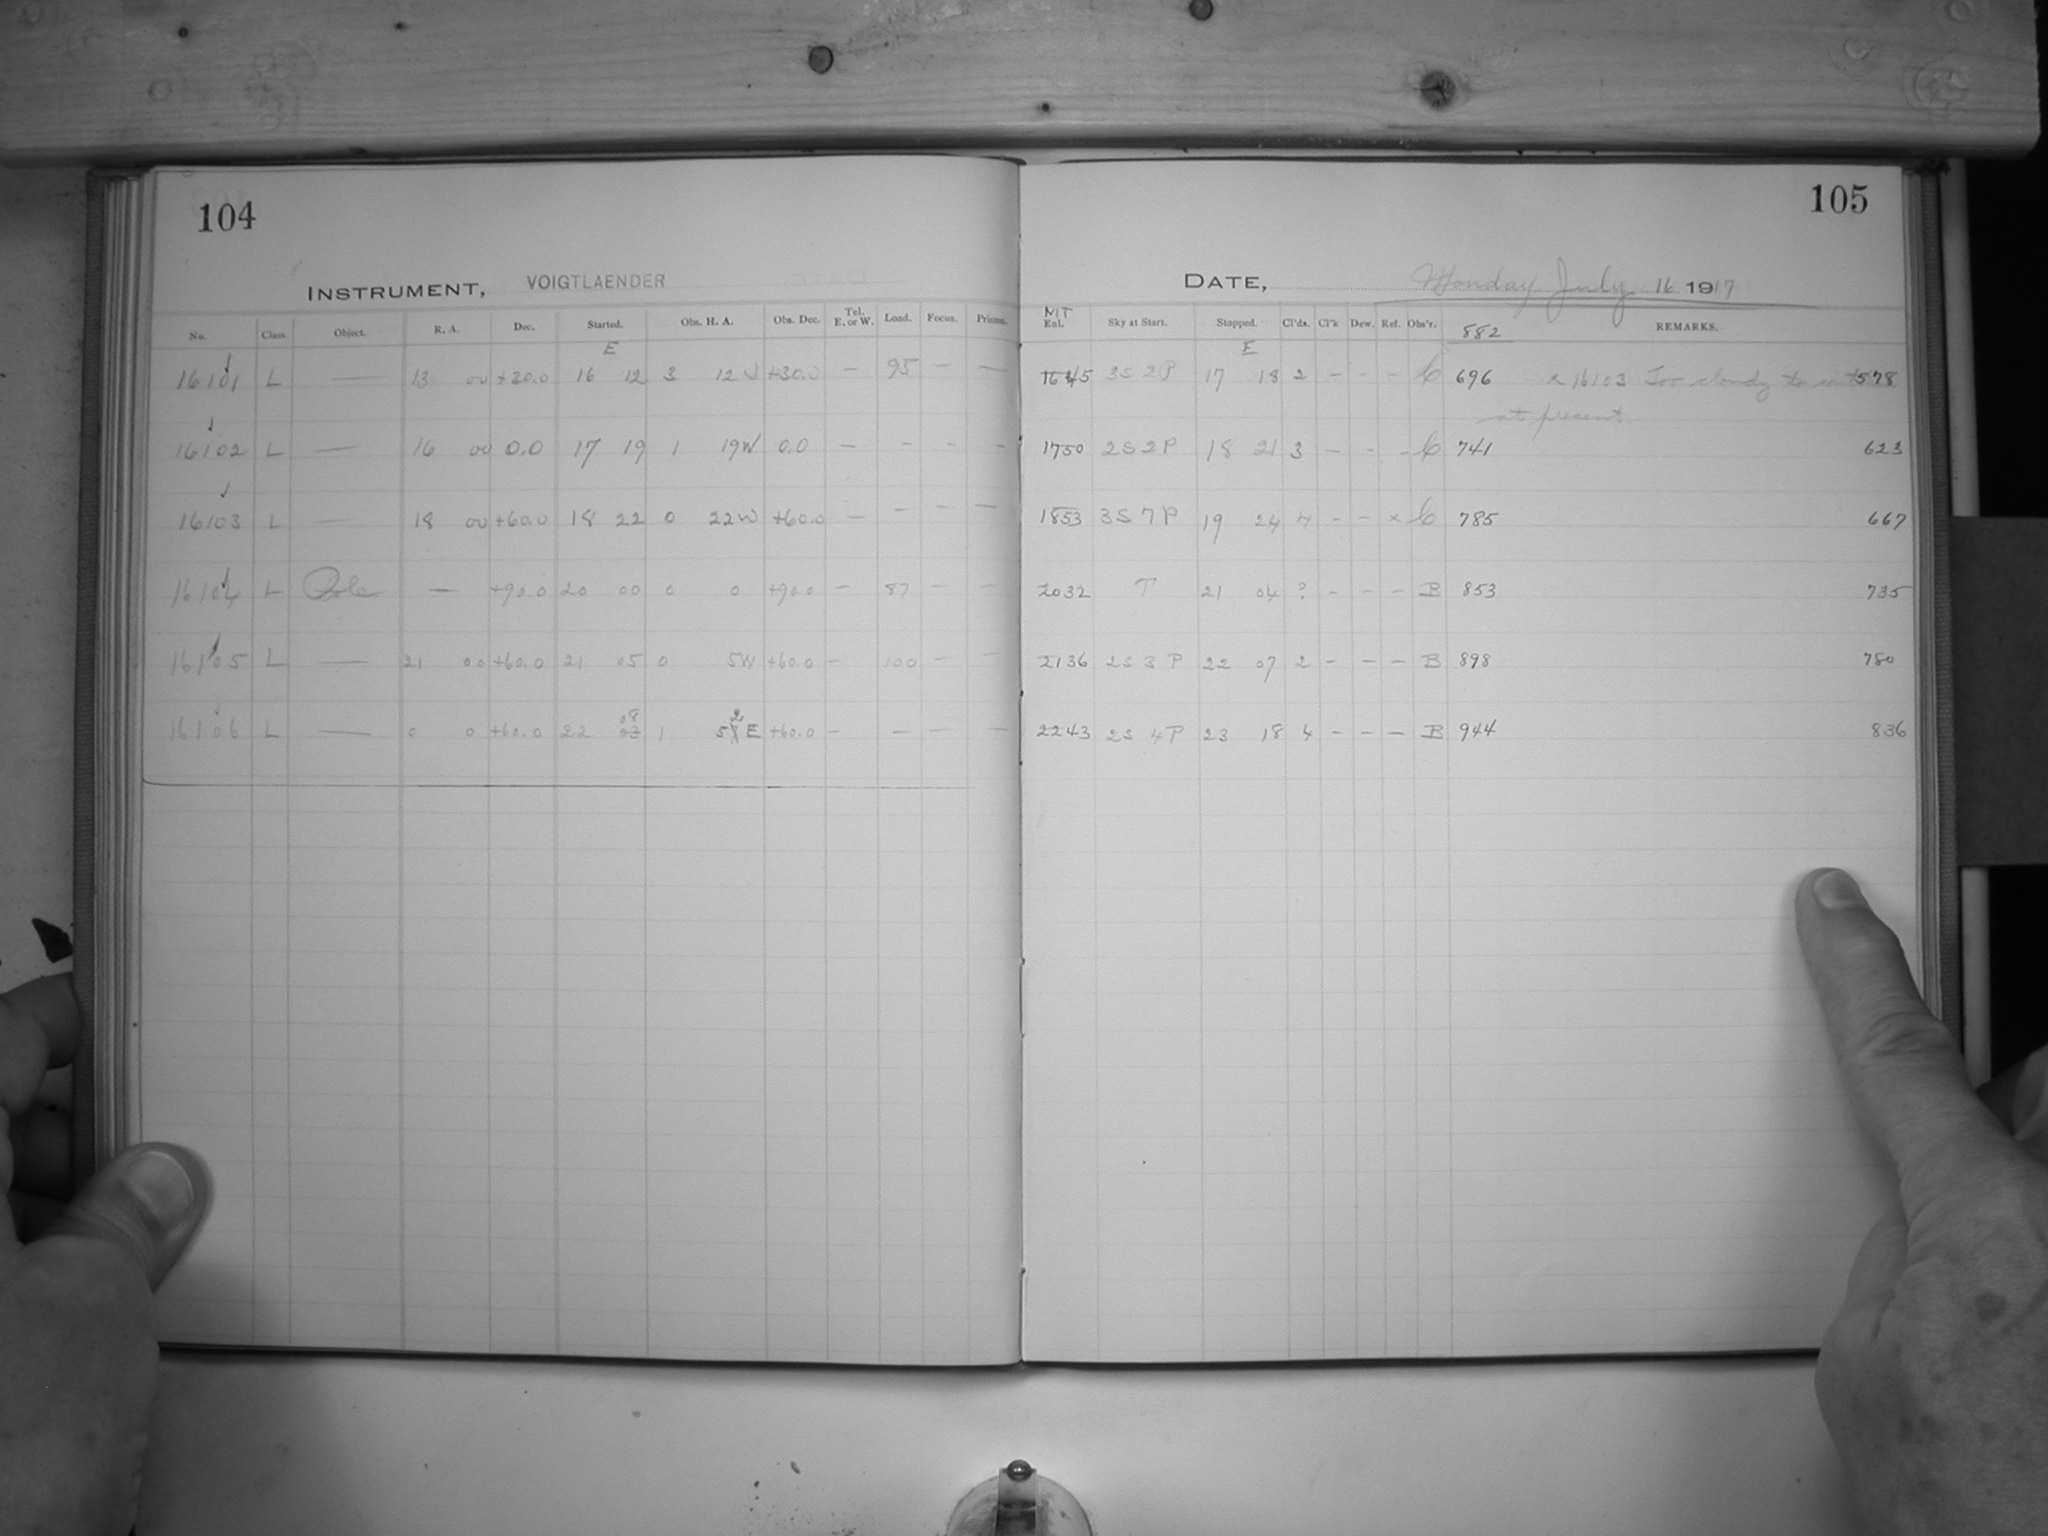 104
INSTRUMENT, VOIGTLAENDER
No. Class. Object. R. A. Dec. Started. Obs. H. A. Obs. Dec. Tel. E. or W. Load. Focus. Prisms.
E
16101 L — 13 00 +30.0 16 12 3 12 W +30.0 — 95 — —
16102 L — 16 00 0.0 17 19 1 19W 0.0 — — — —
16103 L — 18 00 +60.0 18 22 0 22W +60.0 — — — —
16104 L Pole — +90.0 20 00 0 0 +90.0 — 87 — —
16105 L — 21 00 +60.0 21 05 0 5W +60.0 — 100 — —
08
2
16106 L — 0 0 +60.0 22 03 1 5 E +60.0 — — — —
105
DATE, Monday July 16 1917
MT
Enl. Sky at Start. Stopped. Cl'ds. Cl'k Dew. Ref. Obs'r. 882 REMARKS.
E
1645 3S 2P 17 18 2 - - - C 696 x 16103 Too cloudy to 578
at present.
1750 2S 2P 18 21 3 - - - C 741 623
1853 3S 7P 19 24 7 - - x C 785 667
2032 T 21 04 ? - - - B 853 735
2136 2S 3P 22 07 2 - - - B 898 780
2243 2S 4P 23 18 4 - - - B 944 836